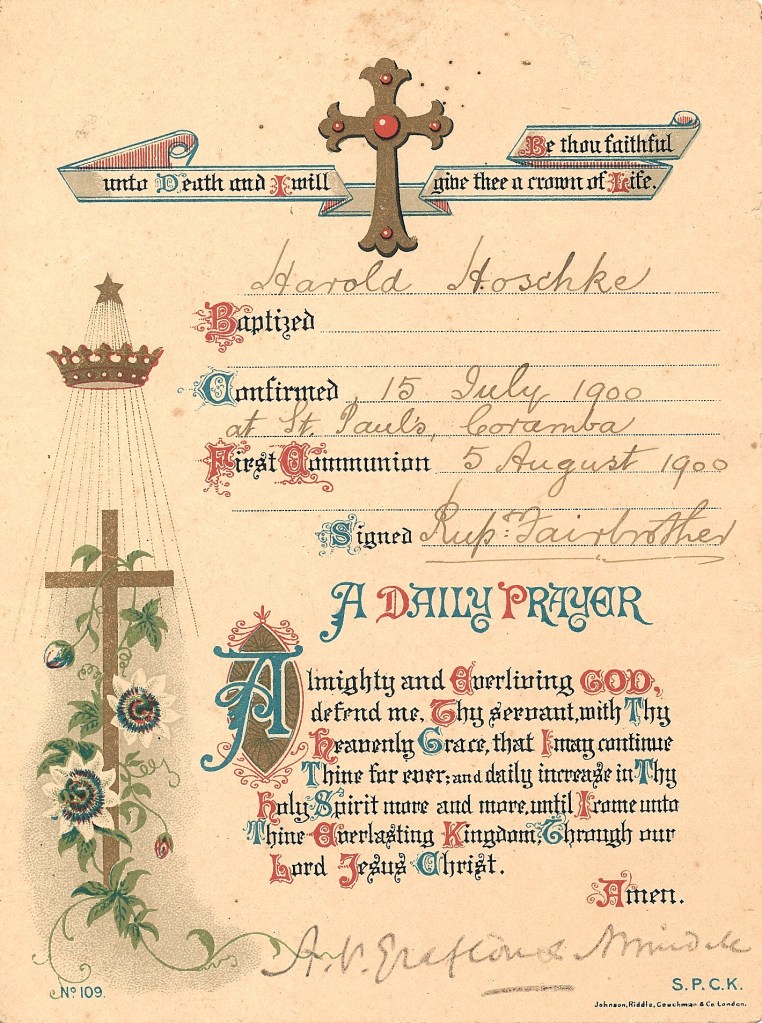 Be thou faithful
unto Death and I will give thee a crown of Life.
Harold Hoschke
Baptized
Confirmed 15 July 1900
at St. Paul's, Coramba
First Communion 5 August 1900
Signed Rupt. Fairbrother
A DAILY PRAYER
Almighty and Everliving GOD,
defend me, Thy servant, with Thy
Heavenly Grace, that I may continue
Thine for ever; and daily increase in Thy
Holy Spirit more and more, until I come unto
Thine Everlasting Kingdom; Through our
Lord Jesus Christ.
Amen.
A. V. Grafton &
No 109.
S.P.C.K.
Johnson, Riddle, Couchman & Co. London.